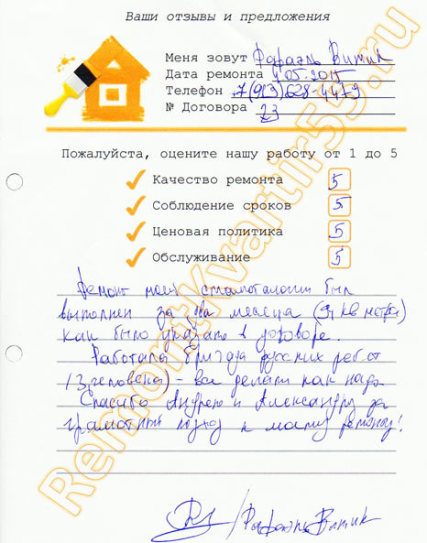 Ваши отзывы и предложения
Меня зовут Рафаэль Витик
Дата ремонта 4.05.2015
Телефон +7(913)628-4479
№ Договора 23
Пожалуйста, оцените нашу работу от 1 до 5
Качество ремонта 5
Соблюдение сроков 5
Ценовая политика 5
Обслуживание 5
Ремонт моей стоматологии был
выполнен за два месяца (91 кв метр)
как было указано в договоре.
Работала бригада русских ребят
(3 человека) - все делали как надо
Спасибо Андрею и Александру за
грамотный подход к моему ремонту!
Рафаэль Витик
RemontKvartir55.ru